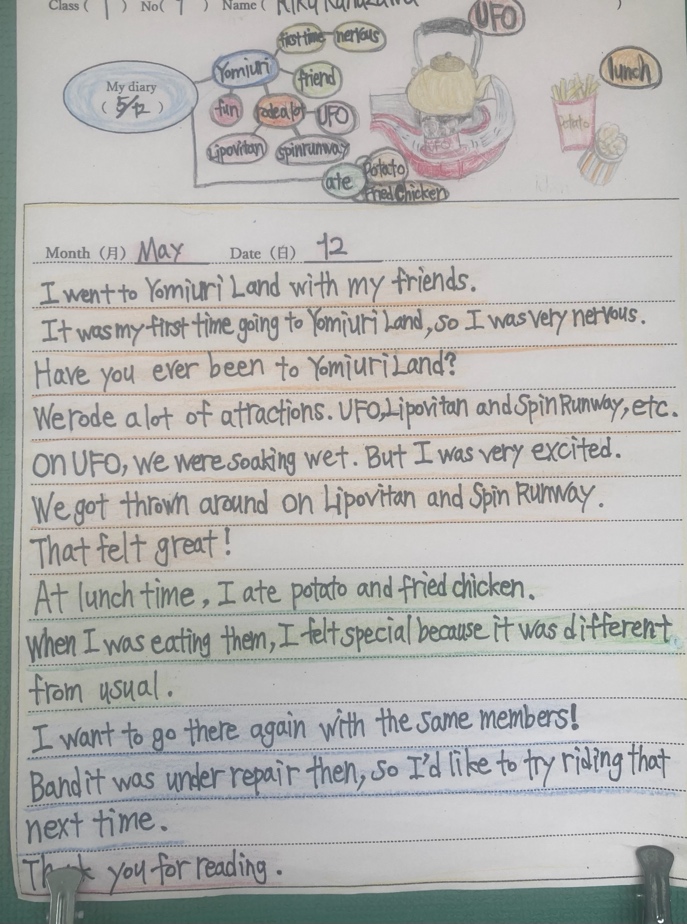 Class ( 1 ) No( 7 ) Name (
UFO
first time nervous
Yomiuri
friend
lunch
My diary
( 5/12 )
fun
rode a lot
UFO
Potato
Lipovitan
Spinrunway
ate
Potato
Fried Chicken
Month (月) May Date (日) 12
I went to Yomiuri Land with my friends.
It was my first time going to Yomiuri Land, so I was very nervous.
Have you ever been to Yomiuri Land?
We rode a lot of attractions. UFO, Lipovitan and Spin Runway, etc.
On UFO, we were soaking wet. But I was very excited.
We got thrown around on Lipovitan and Spin Runway.
That felt great!
At lunch time, I ate potato and fried chicken.
When I was eating them, I felt special because it was different
from usual.
I want to go there again with the same members!
Bandit was under repair then, so I'd like to try riding that
next time.
Thank you for reading.